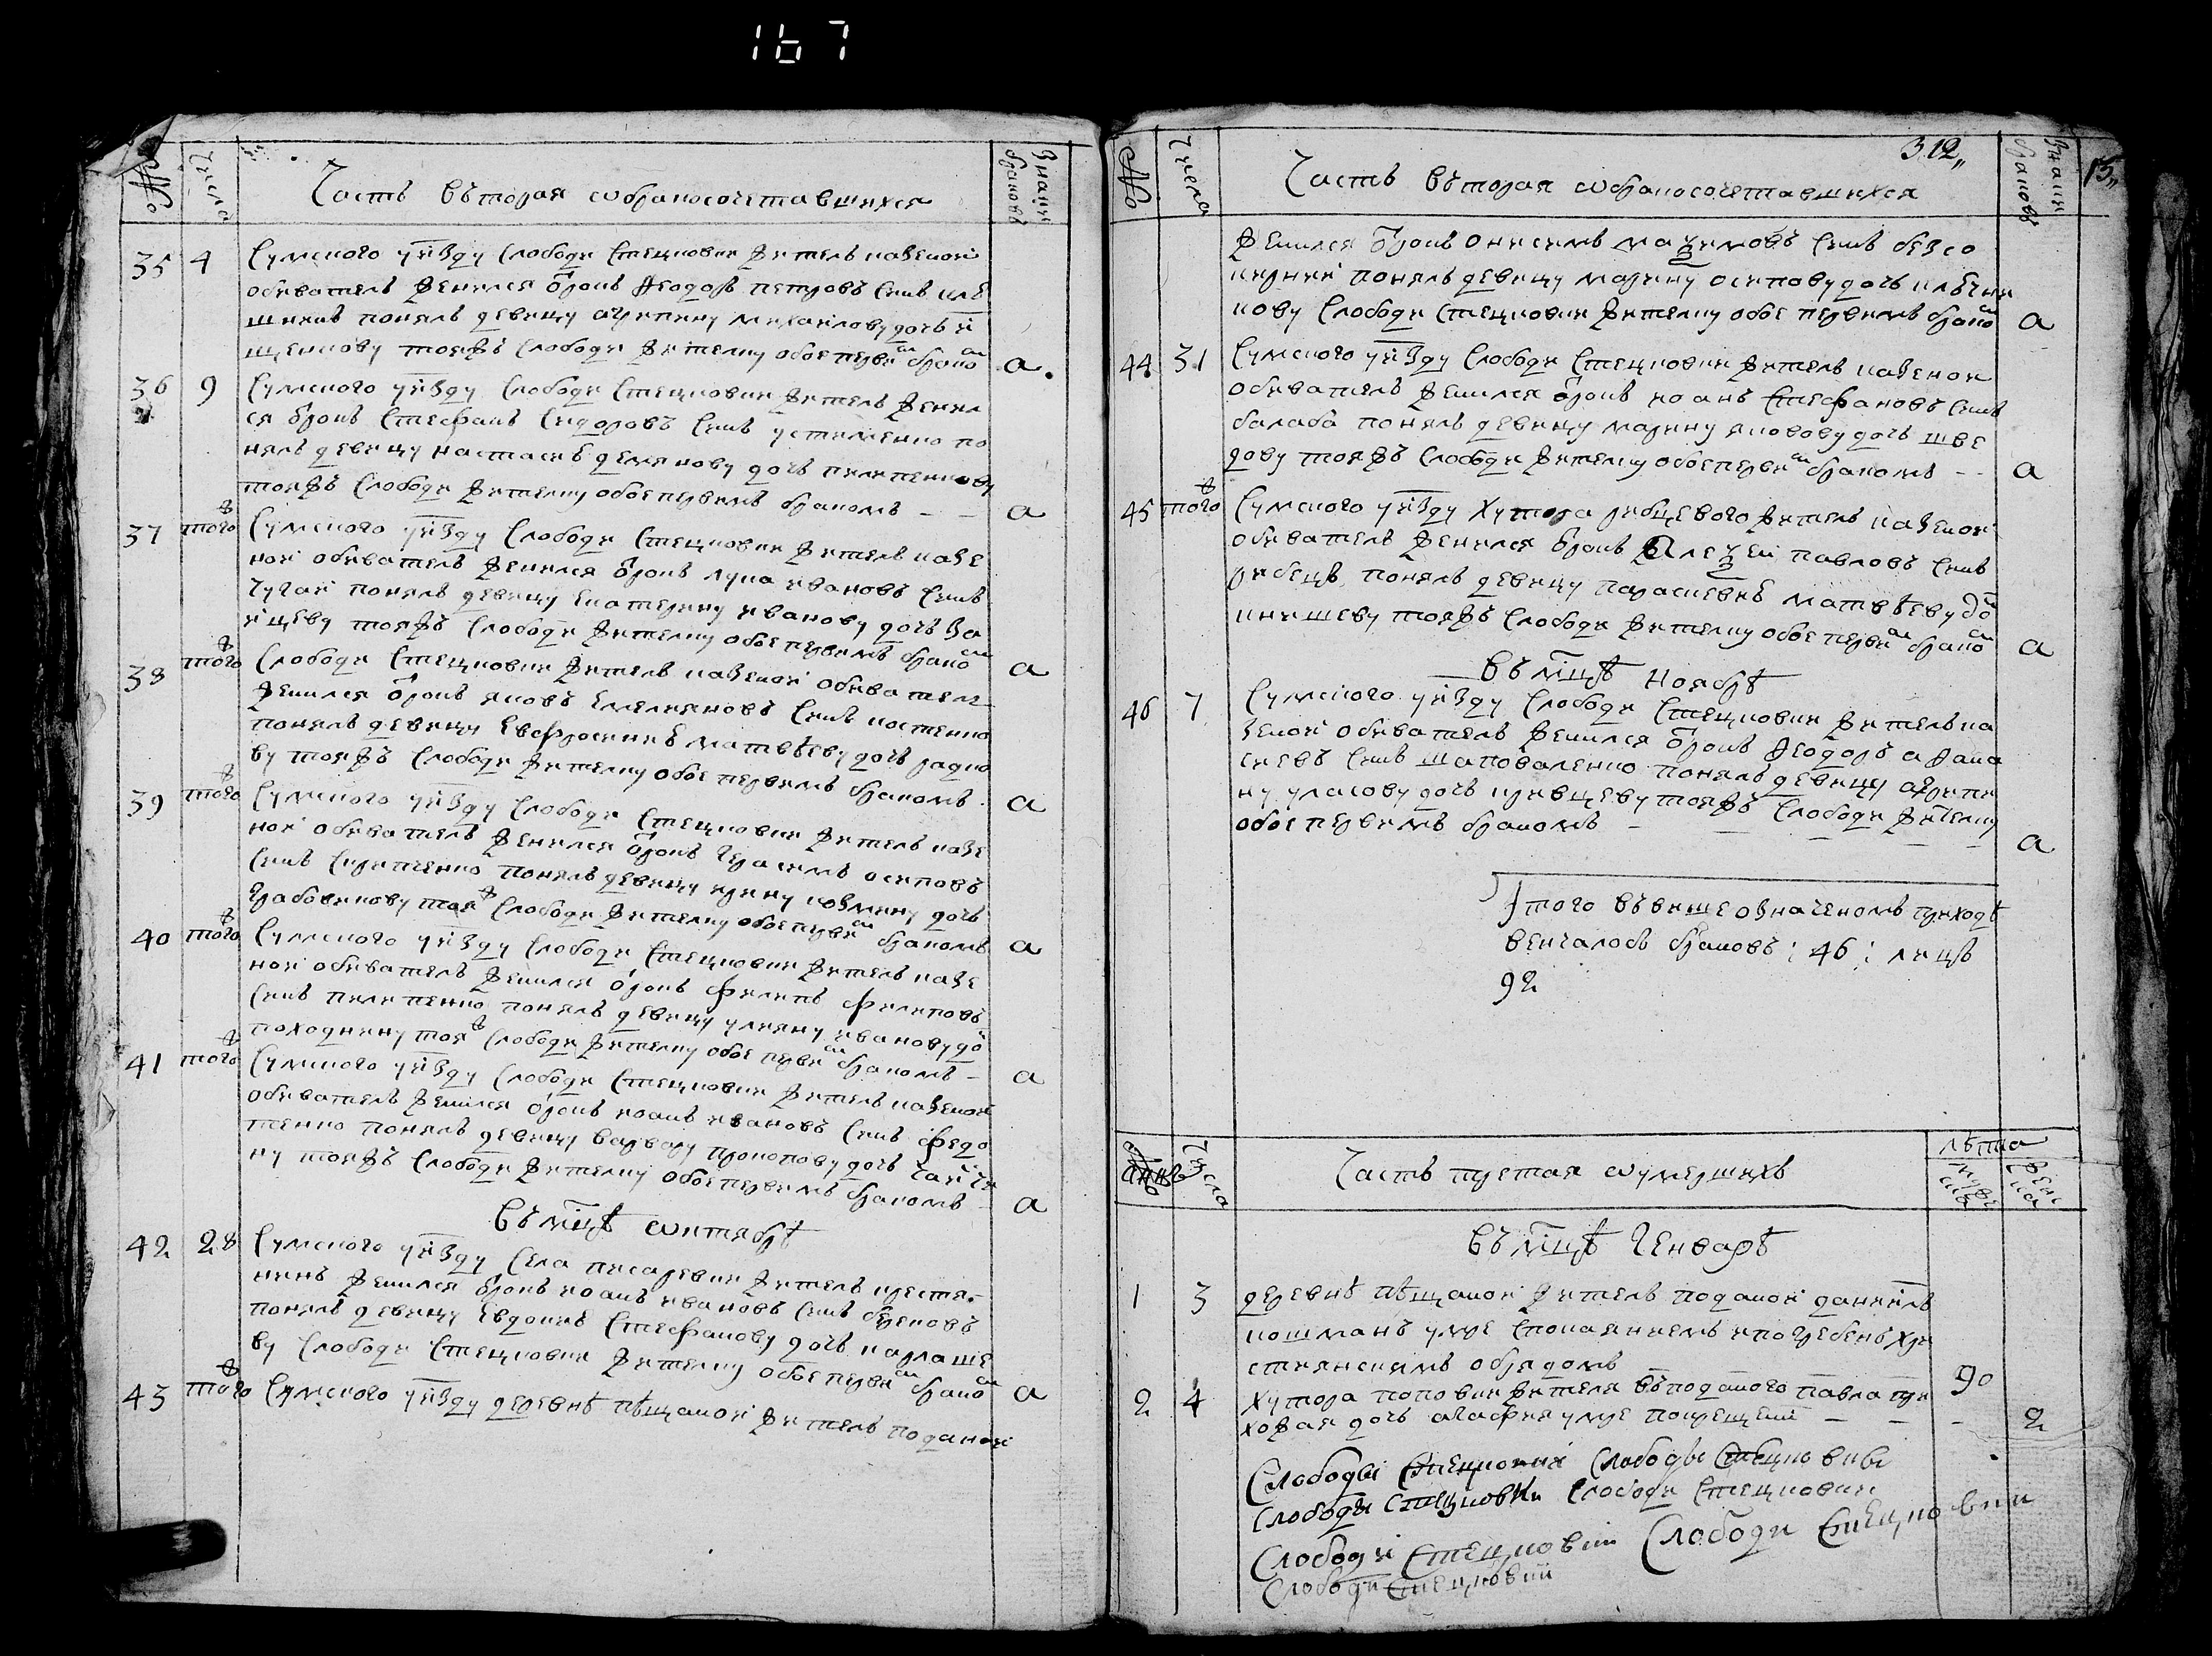 167
№
числа
Часть вторая ѡ бракосочетавшихся
Знаки браковъ
35 4 Сумского уѣзду Слободи Стецковки житель казеной
обиватель женился ѻтрокъ Ѳеодоръ петровъ Синъ
понялъ девицу агрипину михаилову дочь
тояжъ Слободи жителку обое первим брако а.
36 9 Сумского уѣзду Слободи Стецковки житель женил
ся ѻтрокъ Стефанъ Сидоровъ Синъ устименко по
нялъ девицу настасию демянову дочь пилипенкову
тояжъ Слободи жителку обое первимъ бракомъ - - а
37 того ж Сумского уѣзду Слободи Стецковки житель казе
ной обиватель женился ѻтрокъ лука ивановъ Синъ
чугай понялъ девицу екатерину иванову дочь за
йцеву тояжъ Слободи жителку обое первимъ брако м а
38 того ж Слободи Стецковки житель казеной обиватель
женился ѻтрокъ яковъ Емелияновъ Синъ костенко
понялъ девицу Евфросинию матвѣеву дочь радко
ву тояжъ Слободи жителку обое первимъ бракомъ - а
39 того ж Сумского уѣзду Слободи Стецковки житель казе
ной обиватель женился ѻтрокъ герасимъ осиповъ
Синъ Скрипченко понялъ девицу ирину козмину дочь
грабовикову тояж Слободи жителку обое перви м бракомъ а
40 того ж Сумского уѣзду Слободи Стецковки житель казе
ной обиватель женился ѻтрокъ филипъ филиповъ
Синъ пилипенко понялъ девицу улияну иванову до
походнину тояж Слободи жителку обое перви м бракомъ - а
41 того ж Сумского уѣзду Слободи Стецковки житель казеной
обиватель женился ѻтрокъ иоанъ ивановъ Синъ федо
тенко понялъ девицу варвару прокопову дочь
ну тояжъ Слободи жителку обое первимъ бракомъ - а
Въ мцѣ ѡктябрѣ
42 28 Сумского уѣзду Села писаревки житель крестя-
нинъ женился ѻтрокъ иоанъ ивановъ Синъ
понялъ девицу Евдокию Стефанову дочь карпаше
ву Слободи Стецковки жителку обое перви м брако м а
43 того ж Сумского уѣзду деревнѣ пѣщаной житель поданой
312
15
№
числа
Часть вторая ѡ бракосочетавшихся
Знаки браковъ
женился ѻтрокъ онисимъ мазимовъ Синъ безсо
нялъ девицу марину осипову дочь
кову Слободи Стецковки жителку обое первимъ брако м а
44 31 Сумского уѣзду Слободи Стецковки житель казеной
обиватель женился ѻтрокъ иоанъ Стефановъ Синъ
балаба понялъ девицу марину яковову дочь шве
дову тояжъ Слободи жителку обое перви м бракомъ - - а
45 того ж Сумского уѣзду Хутора рибцевого житель казеной
обиватель женился ѻтрокъ алеѯей павловъ Синъ
рибецъ понялъ девицу параскевию матвѣеву до
книшеву тояжъ Слободи жителку обое перви м брако м а
Въ мцѣ Ноябрѣ
46 7 Сумского уѣзду Слободи Стецковки житель ка
зеной обиватель женился ѻтрокъ Ѳеодоръ аѳана
сиевъ Синъ шаповаленко понялъ девицу агрипи
ну уласову дочь кравцеву тояжъ Слободи жителку
обое первимъ бракомъ - - - - - а
Итого въ вишеозначеномъ приходѣ
венчалось браковъ : 46 : лицъ
92
№
числа
Часть третая ѡ умершихъ
лѣта
мужеска
женска
Въ мцѣ Генварѣ
1 3 деревнѣ пѣщаной житель поданой даниилъ
кошманъ умре Спокаяниемъ и погребенъ хри
стиянскимъ обрядомъ 90
2 4 Хутора поповки жителя въ поданого павла при
хожая дочь агафия умре покрещении - - - 2
Слободы Стецковки Слободы Стецковки
Слободы Стецковки Слободи Стецковки
Слободи Стецковки Слободи Стецковки
Слободи Стецковки